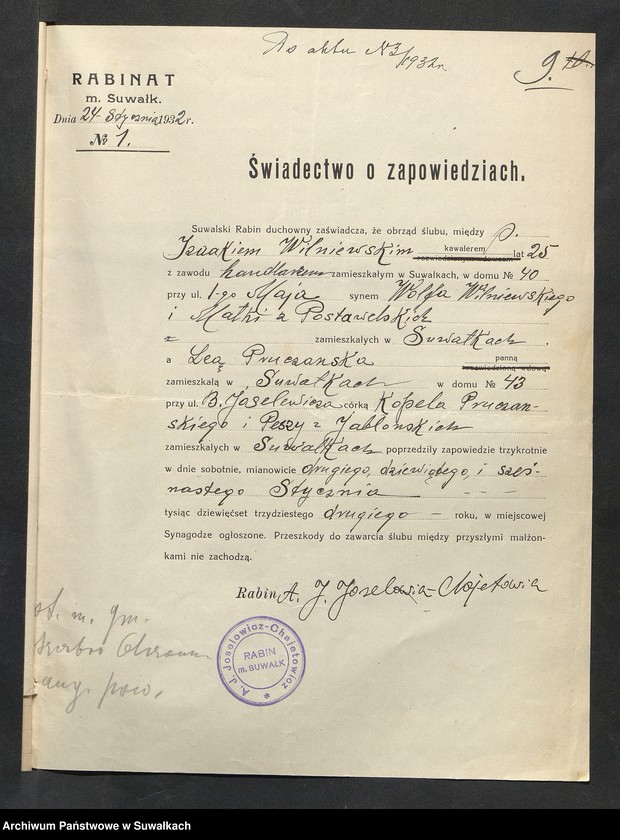 Do aktu N 3/1932 r.
9.
RABINAT
m. Suwałk.
Dnia 24 Stycznia 1932 r.
№ 1.
Świadectwo o zapowiedziach.
Suwalski Rabin duchowny zaświadcza, że obrząd ślubu, między p.
Izaakiem Wilniewskim kawalerem rozwiedzionym-wdowcem lat 25
z zawodu handlarzem zamieszkałym w Suwałkach, w domu № 40
przy ul. 1-go Maja synem Wolfa Wilniewskiego
i Matki z Postawelskich
zamieszkałych w Suwałkach ,
a Leą Pruczanska panną rozwiedzioną-wdową
zamieszkałą w Suwałkach w domu № 43
przy ul. B. Joselewicza córką Kopela Pruczan-
skiego i Peszy z Jabłonskich
zamieszkałych w Suwałkach poprzedziły zapowiedzie trzykrotnie
w dnie sobotnie, mianowicie drugiego, dziewiątego, i szes-
nastego Stycznia
tysiąc dziewięćset trzydziestego drugiego – roku, w miejscowej
Synagodze ogłoszone. Przeszkody do zawarcia ślubu między przyszłymi małżon-
kami nie zachodzą.
Rabin A. J. Joselowicz-Chajetowicz
A. J. Joselowicz-Chajetowicz
RABIN
m. SUWAŁK
m. gm.
pow.
Archiwum Państwowe w Suwałkach